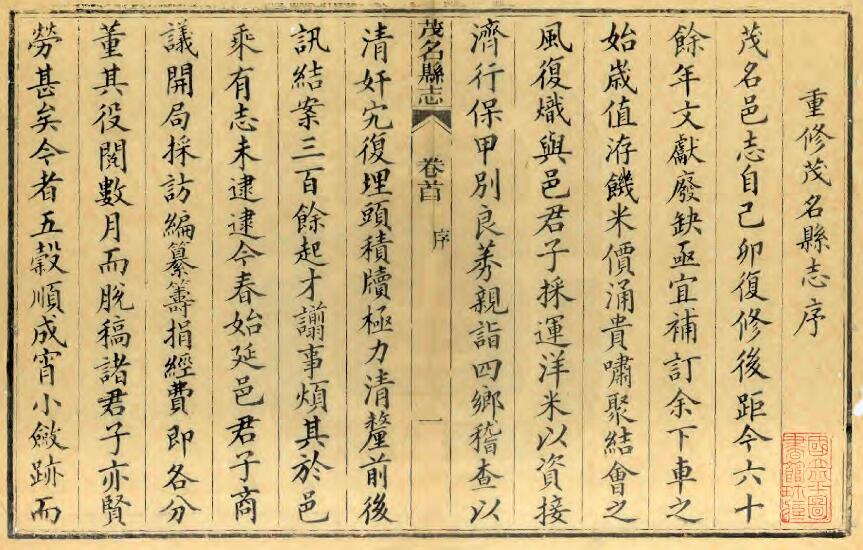 重修茂名縣志序
茂名邑志自己卯復修後距今六十
餘年文獻廢缺亟宜補訂余下車之
始歲值洊饑米價涌貴嘯聚結會之
風復熾與邑君子採運洋米以資接
濟行保甲別良莠親詣四鄉稽查以
茂名縣志 卷首 序 一
清奸宄復埋頭積牘極力清釐前後
訊結案三百餘起才謭事煩其於邑
乘有志未逮逮今春始延邑君子商
議開局採訪編纂籌捐經費即各分
董其役閱數月而脫稿諸君子亦賢
勞甚矣今者五穀順成宵小斂跡而